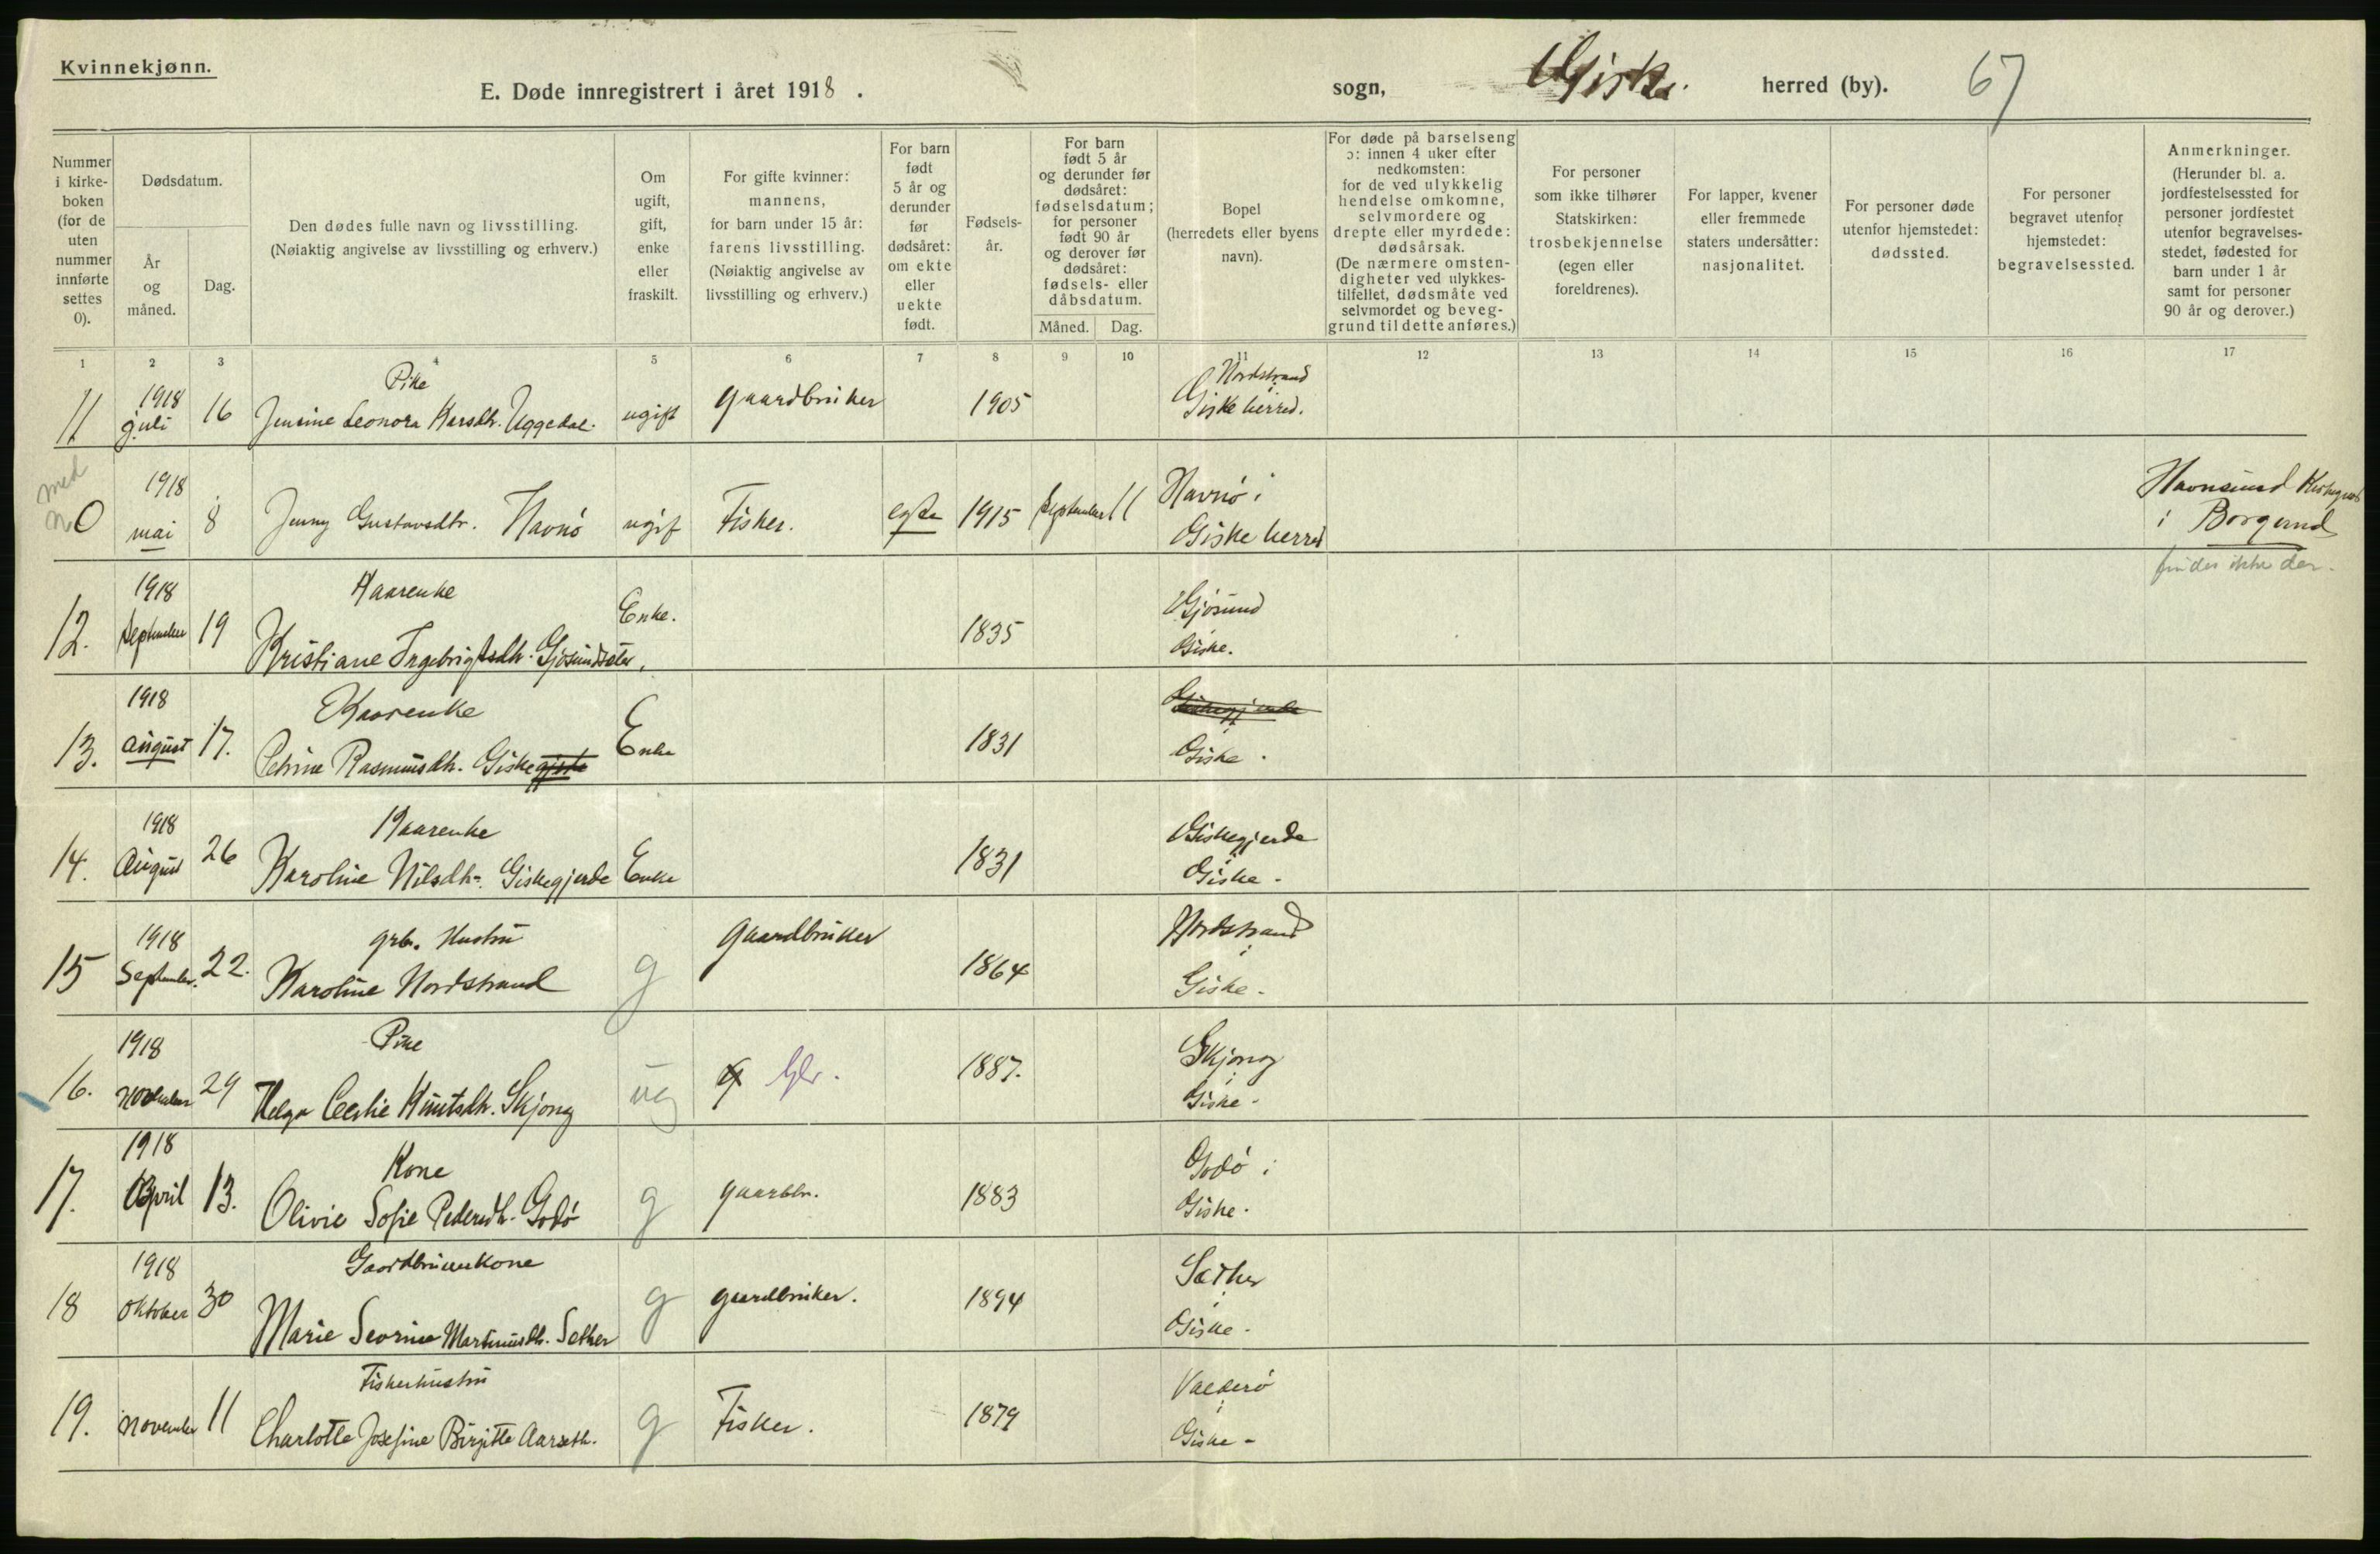 Kvinnekjønn.
E. Døde innregistrert i året 1918 .
sogn, Giske. herred (by). 67
Nummer i kirke-boken (for de uten nummer innførte settes 0).
Dødsdatum.
År og måned.
Dag.
Den dødes fulle navn og livsstilling.
(Nøiaktig angivelse av livsstilling og erhverv.)
Om ugift, gift, enke eller fraskilt.
For gifte kvinner: mannens, for barn under 15 år: farens livsstilling. (Nøiaktig angivelse av livsstilling og erhverv.)
For barn født 5 år og derunder før dødsåret: om ekte eller uekte født.
Fødsels-år.
For barn født 5 år og derunder før dødsåret: fødselsdatum; for personer født 90 år og derover før dødsåret: fødsels- eller dåbsdatum.
Måned. Dag.
Bopel (herredets eller byens navn).
For døde på barselseng ɔ: innen 4 uker efter nedkomsten: for de ved ulykkelig hendelse omkomne, selvmordere og drepte eller myrdede: dødsårsak. (De nærmere omsten-digheter ved ulykkes-tilfellet, dødsmåte ved selvmordet og beveg-grund til dette anføres.)
For personer som ikke tilhører Statskirken: trosbekjennelse (egen eller foreldrenes).
For lapper, kvener eller fremmede staters undersåtter: nasjonalitet.
For personer døde utenfor hjemstedet: dødssted.
For personer begravet utenfor hjemstedet: begravelsessted.
Anmerkninger. (Herunder bl. a. jordfestelsessted for personer jordfestet utenfor begravelses-stedet, fødested for barn under 1 år samt for personer 90 år og derover.)
1 2 3 4 5 6 7 8 9 10 11 12 13 14 15 16 17
1918 Pike Nordstrand
11 juli 16 Jensine Leonora Karsdtr. Uggedal. ugift gaardbruker 1905 Giske herred.
med 1918 Havnö i Havnsund Kirkegaard
n 0 mai 8 Jenny Gustavsdtr. Havnö ugif Fisker. egte 1915 September 11 Giske herred i Borgund
findes ikke der.
1918 Kaarenke Gjösund
12. September 19 Kristiane Ingebrigtsdtr. Gjösundsæter. Enke. 1835 Giske.
1918 Kaarenke Giskegjerde
13. august 17. Petrine Rasmusdtr. Giskegjerde Enke 1831 Giske.
1918 Kaarenke Giskegjerde
14. August 26 Karoline Nilsdtr. Giskegjerde Enke 1831 Giske.
1918 grb. Hustru Gaardbruker Nordstrand i
15 September. 22. Karoline Nordstrand g 1864 Giske.
1918 Pike Skjong i
16. November 29 Helga Cecilie Knutsdtr. Skjong ug g Gbr. 1887. Giske.
1918 Kone Godö i
17. April 13. Olivie Sofie Pedersdtr. Godö g gaardbr. 1883 Giske.
1918 Gaardbrukerkone Sæther i
18 Oktober 30 Marie Severine Martinusdtr. Sæther g gaardbruker. 1894 Giske.
Fiskerhustru Valderö i
19. November 11 Charlotte Josefine Birgitte Aarseth. g Fisker. 1879 Giske.